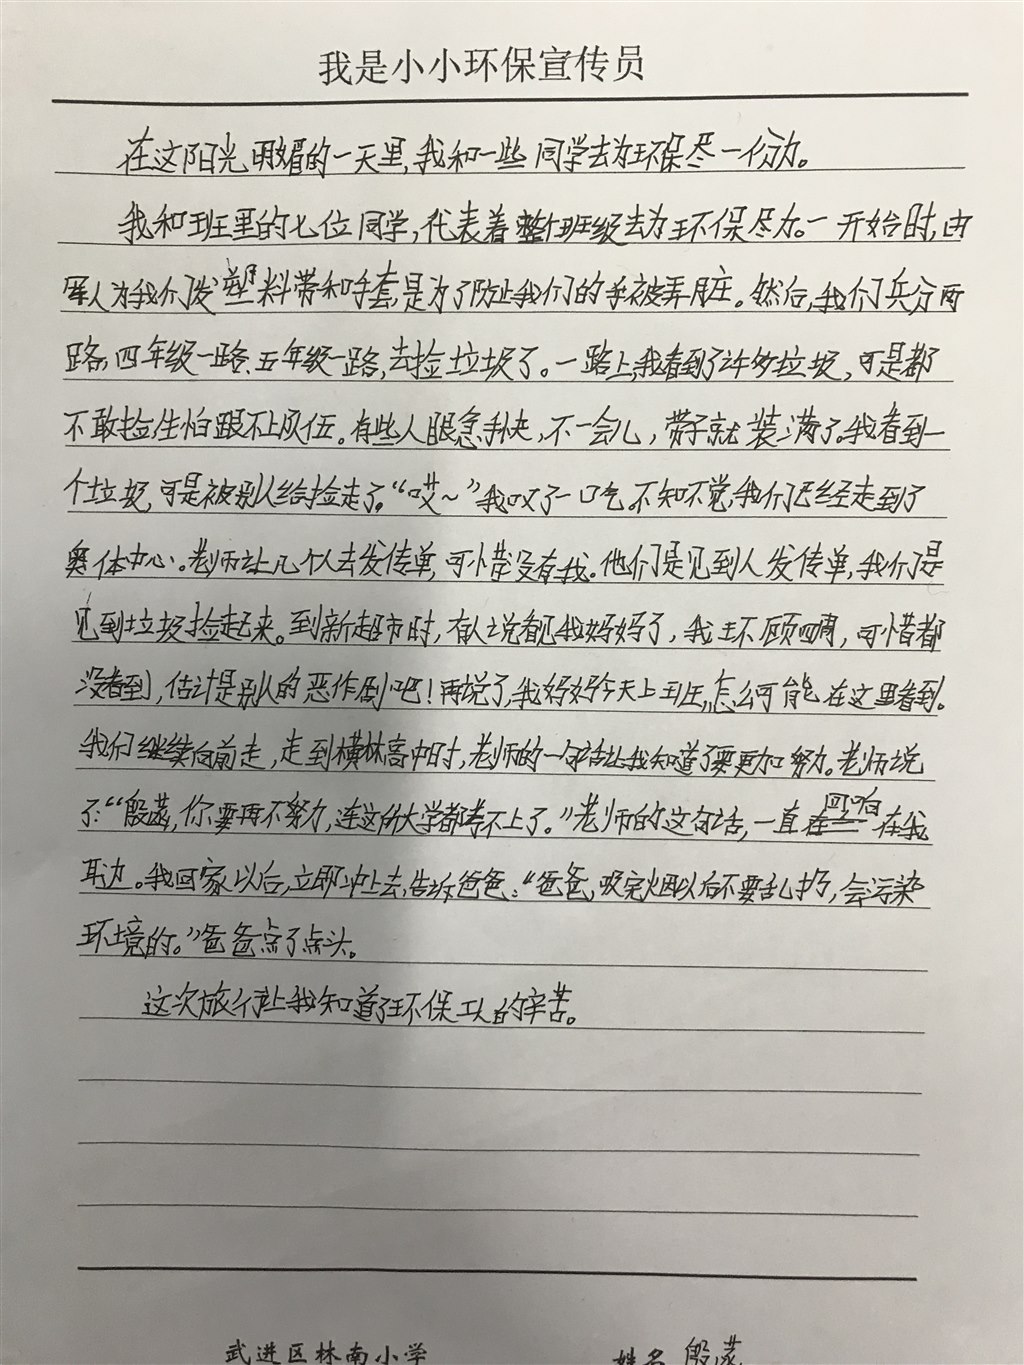 我是小小环保宣传员
在这阳光明媚的一天里,我和一些同学去为环保尽一份力。
我和班里的七位同学,代表着整个班级去为环保尽力。一开始时,由
军人为我们发塑料带和手套,是为了防止我们的手被弄脏。然后,我们兵分两
路,四年级一路、五年级一路,去捡垃圾了。一路上,我看到了许多垃圾,可是都
不敢捡,生怕跟不上队伍。有些人眼急手快,不一会儿,带子就装满了。我看到一
个垃圾,可是被别人给捡走了。“哎~”我叹了一口气。不知不觉,我们已经走到了
奥体中心。老师让几个人去发传单,可惜没有我。他们是见到人发传单,我们是
见到垃圾捡起来。到新超市时,有人说看见我妈妈了,我环顾四周,可惜都
没看到,估计是别人的恶作剧吧!再说了,我妈妈今天上班,怎么可能在这里看到。
我们继续向前走,走到横林高中时,老师的一句话让我知道了要更加努力。老师说
了:“殷菡,你要再不努力,连这所大学都考不上了。”老师的这句话,一直回响在我
耳边。我回家以后,立即冲上去,告诉爸爸:“爸爸,吸完烟以后不要乱扔,会污染
环境的。”爸爸点了点头。
这次旅行让我知道了环保工人的辛苦。
武进区林南小学 姓名 殷菡